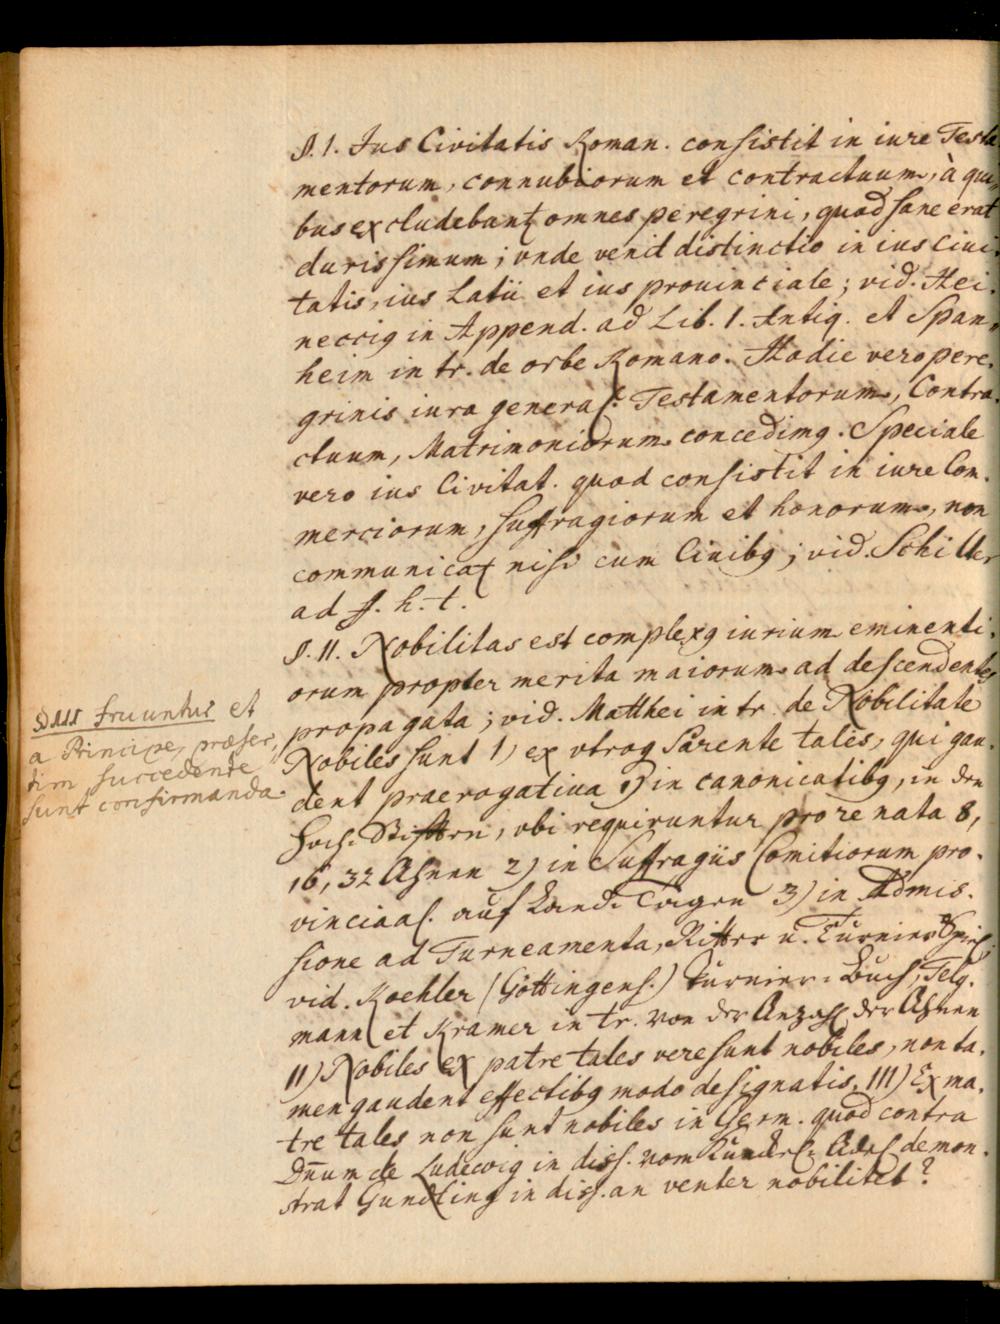 §. I. Ius Civitatis Roman. consistit in iure Testa
mentorum, connubiorum et contractuum, à qui,
bus excludebant omnes peregrini, quod sane erat
durissimum; vnde venit distinctio in ius Ciui,
tatis, ius Latii et ius prouinciale; vid. Hei,
neccig in Append. ad Lib. 1. Antiq. et Span,
heim in tr. de orbe Romano. Hodie vero pere,
grinis iura general: Testamentorum, Contra,
ctuum, Matrimoniorum concedimg. Speciale
vero ius Civitat. quod consistit in iure Com,
merciorum, suffragiorum et honorum, non
communicat nisi cum Ciuibg; vid. Schilter
ad ff. h. t.
§. II. Nobilitas est complexg iurium eminenti,
orum propter merita maiorum ad descendentes
propagata; vid. Matthei in tr. de Nobilitate
Nobiles sunt 1) ex vtroq Parente tales, qui gau,
dent praerogatiua 1) in canonicatibg, in den
Hoch-Stifftern, vbi requiruntur pro re nata 8,
16, 32 Ahnen 2) in Suffragiis Comitiorum pro,
vinciaal. auf Land-Tagen 3) in Admis,
sione ad Turneamenta, Ritter u. Turnier Spiel
vid. Koehler (Göttingens.) Turnier-Buch, Telg,
mann et Kramer in tr. von der Anzahl der Ahnen
II) Nobiles ex patre tales vere sunt nobiles, non ta,
men gaudent effectibg modo designatis. III) Ex ma,
tre tales non sunt nobiles in Germ. quod contra
Dnum de Ludewig in diss. vom Kunckel-Adel demon,
strat Gundling in diss. an venter nobilitet?
fruuntur et
a Principe, præser,
tim succedente
sunt confirmanda.